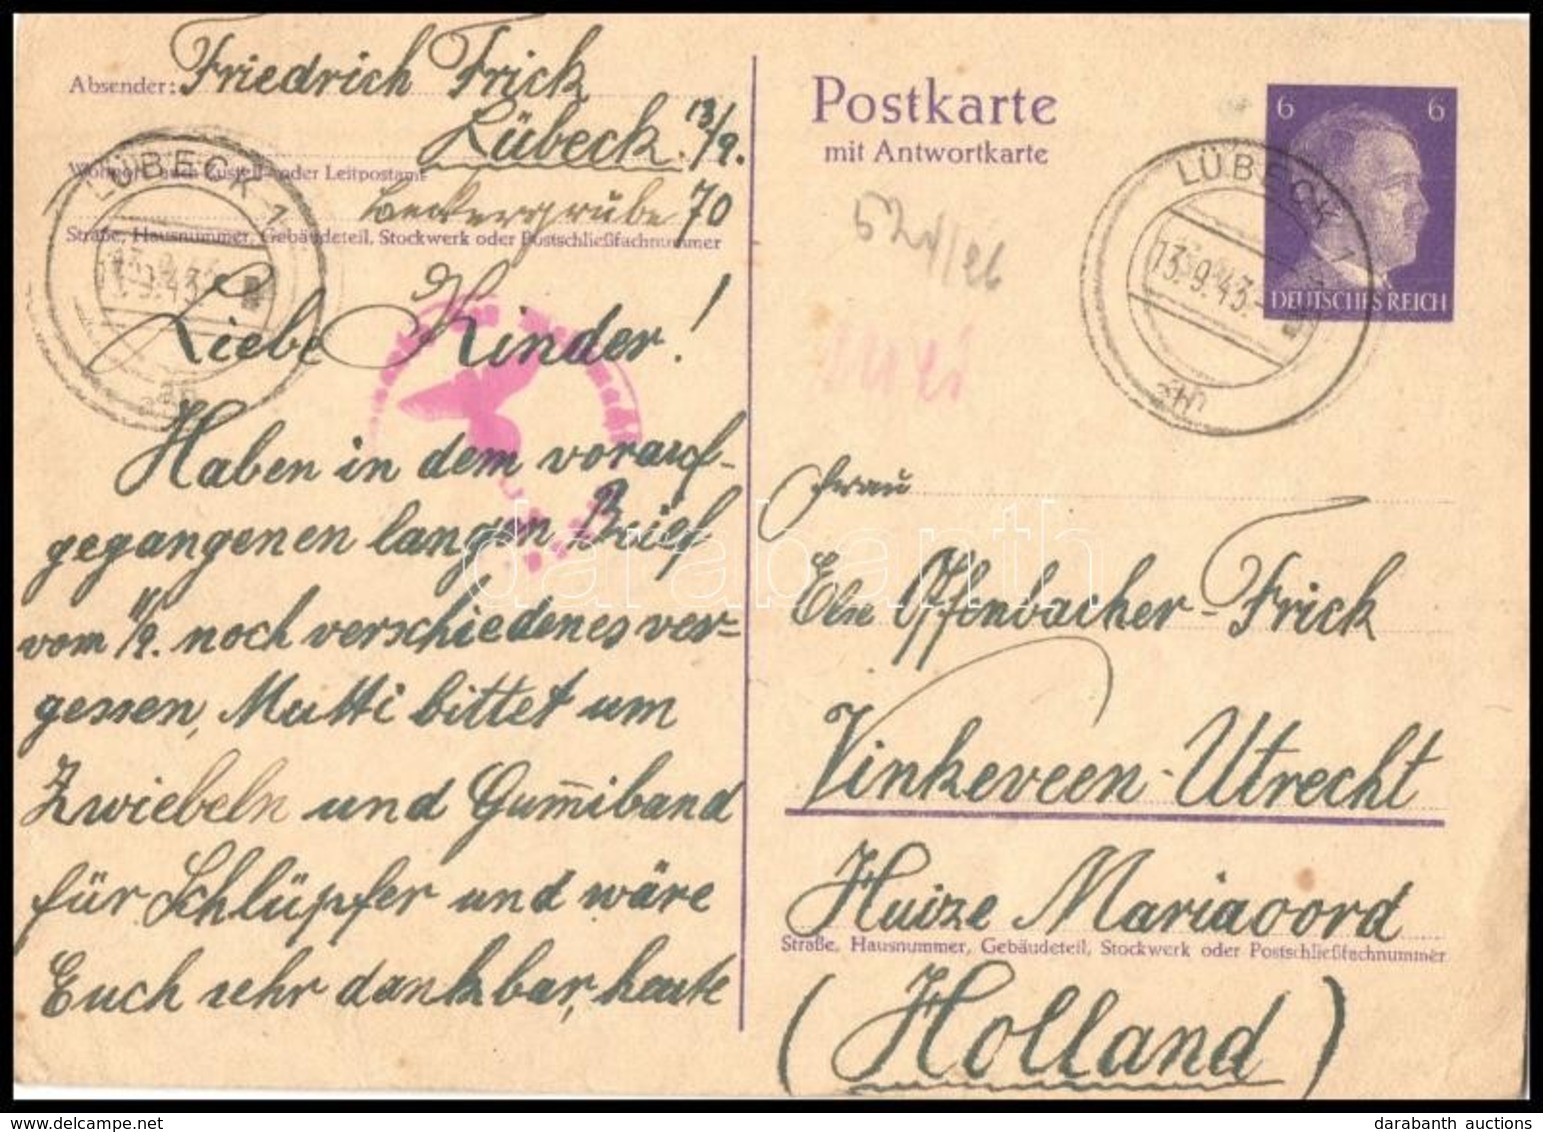 Absender: Friedrich Frick
Lübeck. 13/9.
Wohnort, auch Zustell- oder Leitpostamt
Beckergrube 70
Straße, Hausnummer, Gebäudeteil, Stockwerk oder Postschließfachnummer
LÜBECK 1
13.9.43
Liebe Kinder!
Haben in dem vorauf-
gegangenen langen Brief
vom 11/9. noch verschiedenes ver-
gessen, Mutti bittet um
Zwiebeln und Gum̄iband
für Schlüpfer und wäre
Euch sehr dankbar, heute
Postkarte
mit Antwortkarte
6 6
DEUTSCHES REICH
LÜBECK 1
13.9.43
Frau
Else Offenbacher-Frick
Vinkeveen-Utrecht
Huize Mariaoord
Straße, Hausnummer, Gebäudeteil, Stockwerk oder Postschließfachnummer
(Holland)
darabanth
darabanth auctions